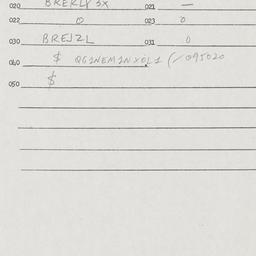 020 BRERLY 3X 021 —
022 0 023 0
030 BREJ2L 031 0
040 $ QG1NEM1NXOL1 (/095020
050 $